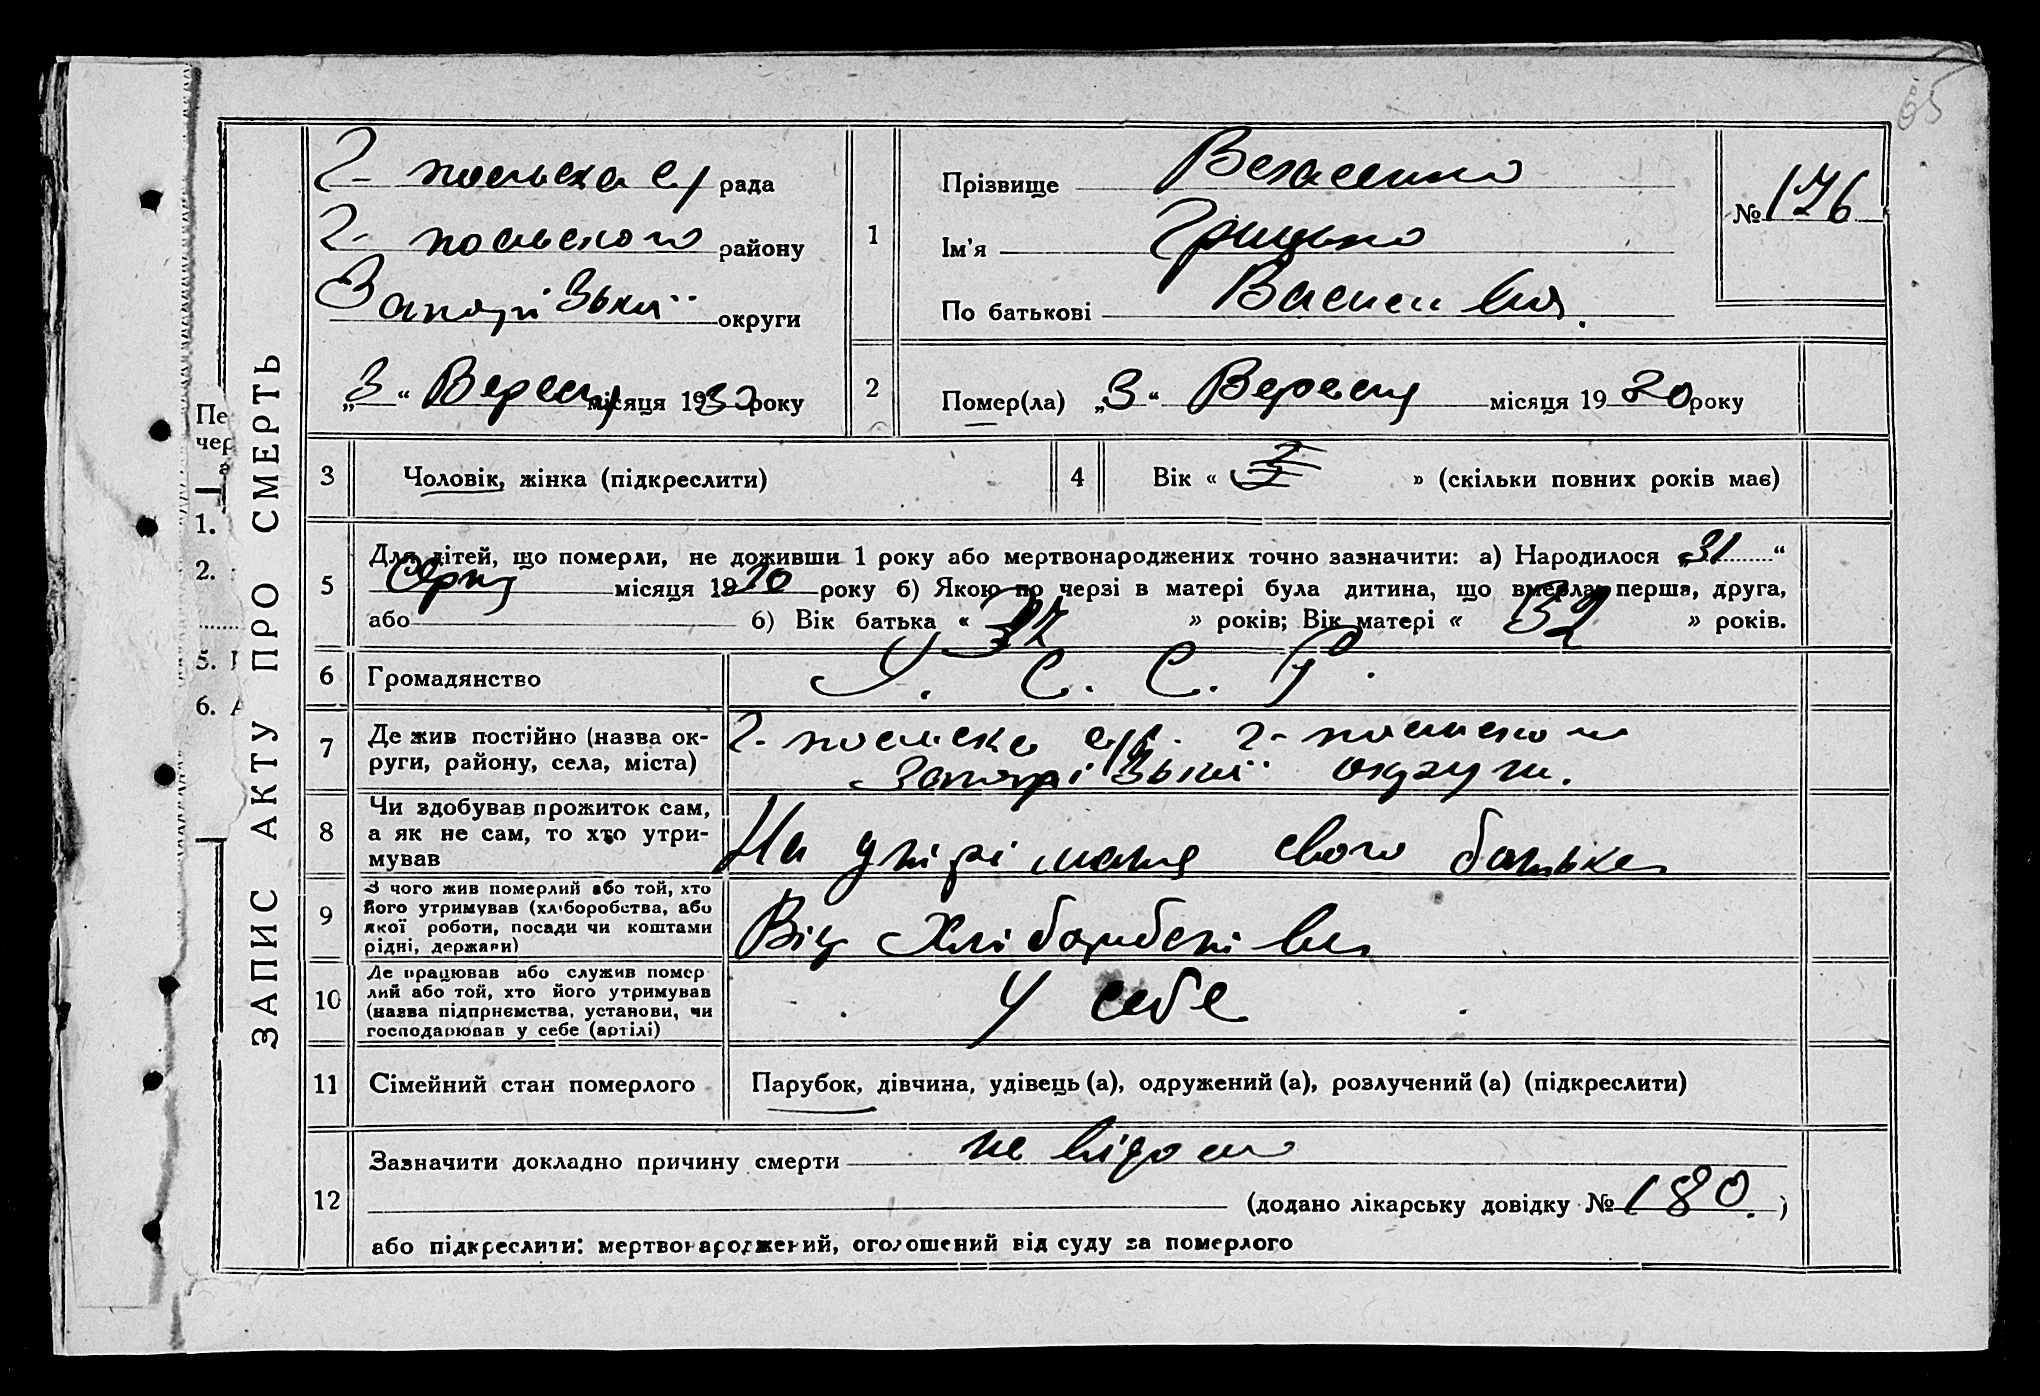 65
ЗАПИС АКТУ ПРО СМЕРТЬ
Г-польска с/рада
Г-польского району
Запорізької округи
„3“ Вересня місяця 1930 року
1
Прізвище
Ім'я Грицько
По батькові
№ 176
2
Помер(ла) „3“ Вересня місяця 19 30 року
3 Чоловік, жінка (підкреслити)
4 Вік « » (скільки повних років має)
5
Для дітей, що померли, не доживши 1 року або мертвонароджених точно зазначити: а) Народилося „31“
Серпня місяця 1930 року б) Якою по черзі в матері була дитина, що вмерла: перша, друга,
або б) Вік батька « 37 » років; Вік матері « 32 » років.
6 Громадянство У. С. С. Р.
7
Де жив постійно (назва ок-
руги, району, села, міста)
Г-польска с/р. Г-польского
Запорізької округи.
8
Чи здобував прожиток сам,
а як не сам, то хто утри-
мував
На утрімання свого батька
9
З чого жив померлий або той, хто
його утримував (хліборобства, або
якої роботи, посади чи коштами
рідні, держави)
Від
10
Де працював або служив помер
лий або той, хто його утримував
(назва підприємства, установи, чи
господарював у себе (артілі)
У себе
11 Сімейний стан померлого
Парубок, дівчина, удівець (а), одружений (а), розлучений (а) (підкреслити)
12
Зазначити докладно причину смерти не відомо
(додано лікарську довідку № 180.)
або підкреслити: мертвонароджений, оголошений від суду за померлого
Пе
чер
а
1.
2.
5.
6.